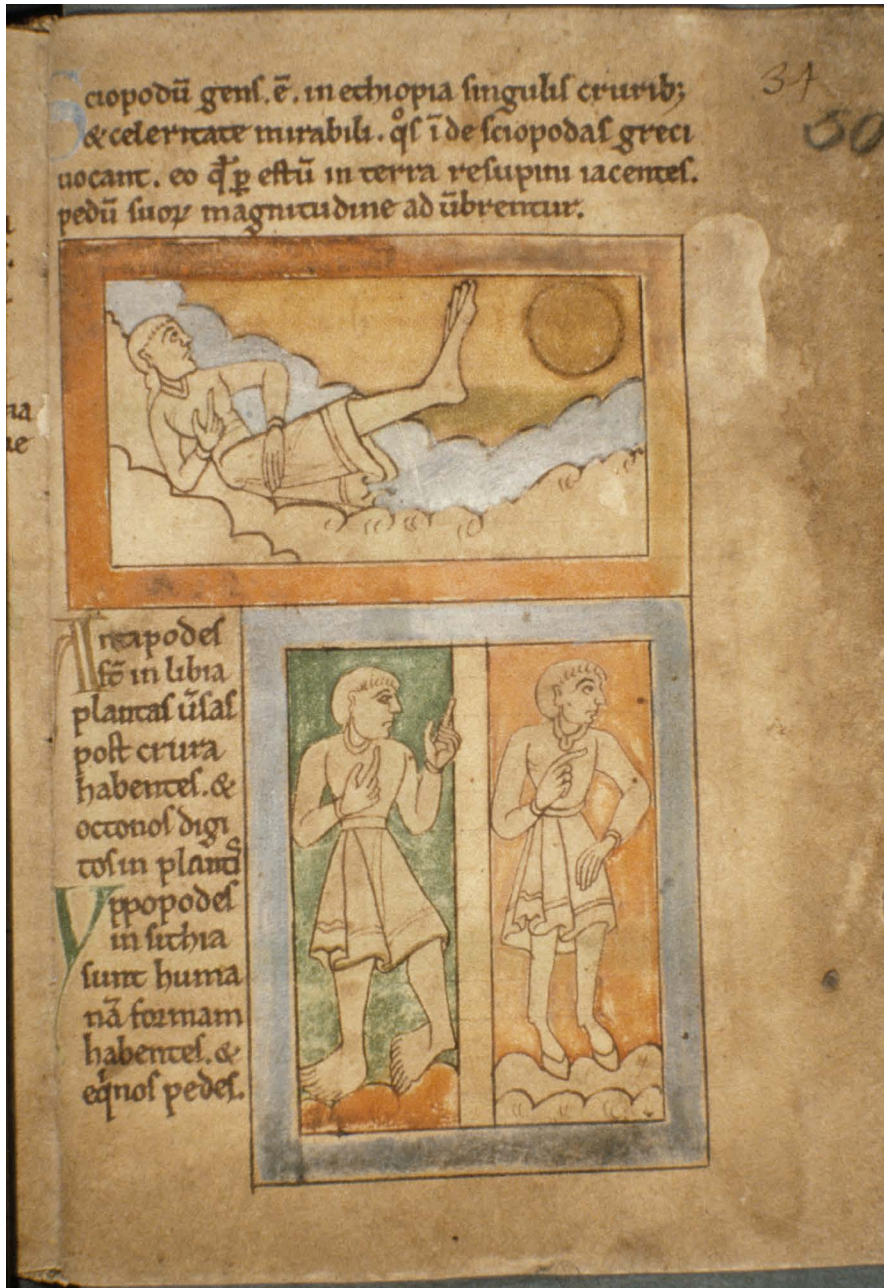 34
50
Sciopodū genſ. ē. in ethiopia ſingulíſ crurib;
& celeritate mirabili. qͦſ ī de ſciopodaſ greci
uocant. eo qđ p̱ eſtū in terra reſupini iacenteſ.
pedū ſuoꝝ magnitudine ad ūbrentur.
Antipodeſ
ſt̄ in libia
plantaſ ūſaſ
poſt crura
habenteſ. &
octonoſ digi
toſ in plantiſ
Yppopodeſ
in ſithia
sunt huma
nā formam
habenteſ. &
eqͥnoſ pedeſ.